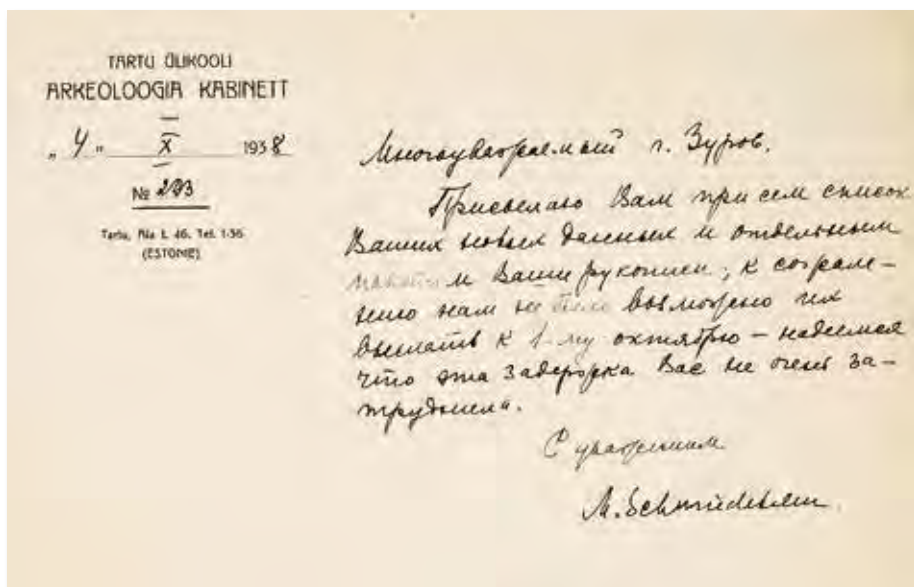 TARTU ÜLIKOOLI
ARKEOLOOGIA KABINETT
„ 4 „ X 1938
№ 293
Tartu, Aia t. 46. Tel. 1-36
(ESTONIE)
Многоуважаемый г. Зуров.
Присылаю Вам при сем список
Ваших новых данных и отдельным
пакетом Ваши рукописи; к сожале-
нию нам не было возможно их
выслать к 1-му октябрю – надеемся
что эта задержка Вас не очень за-
труднила.
С уважением
M. Schmiedehelm.